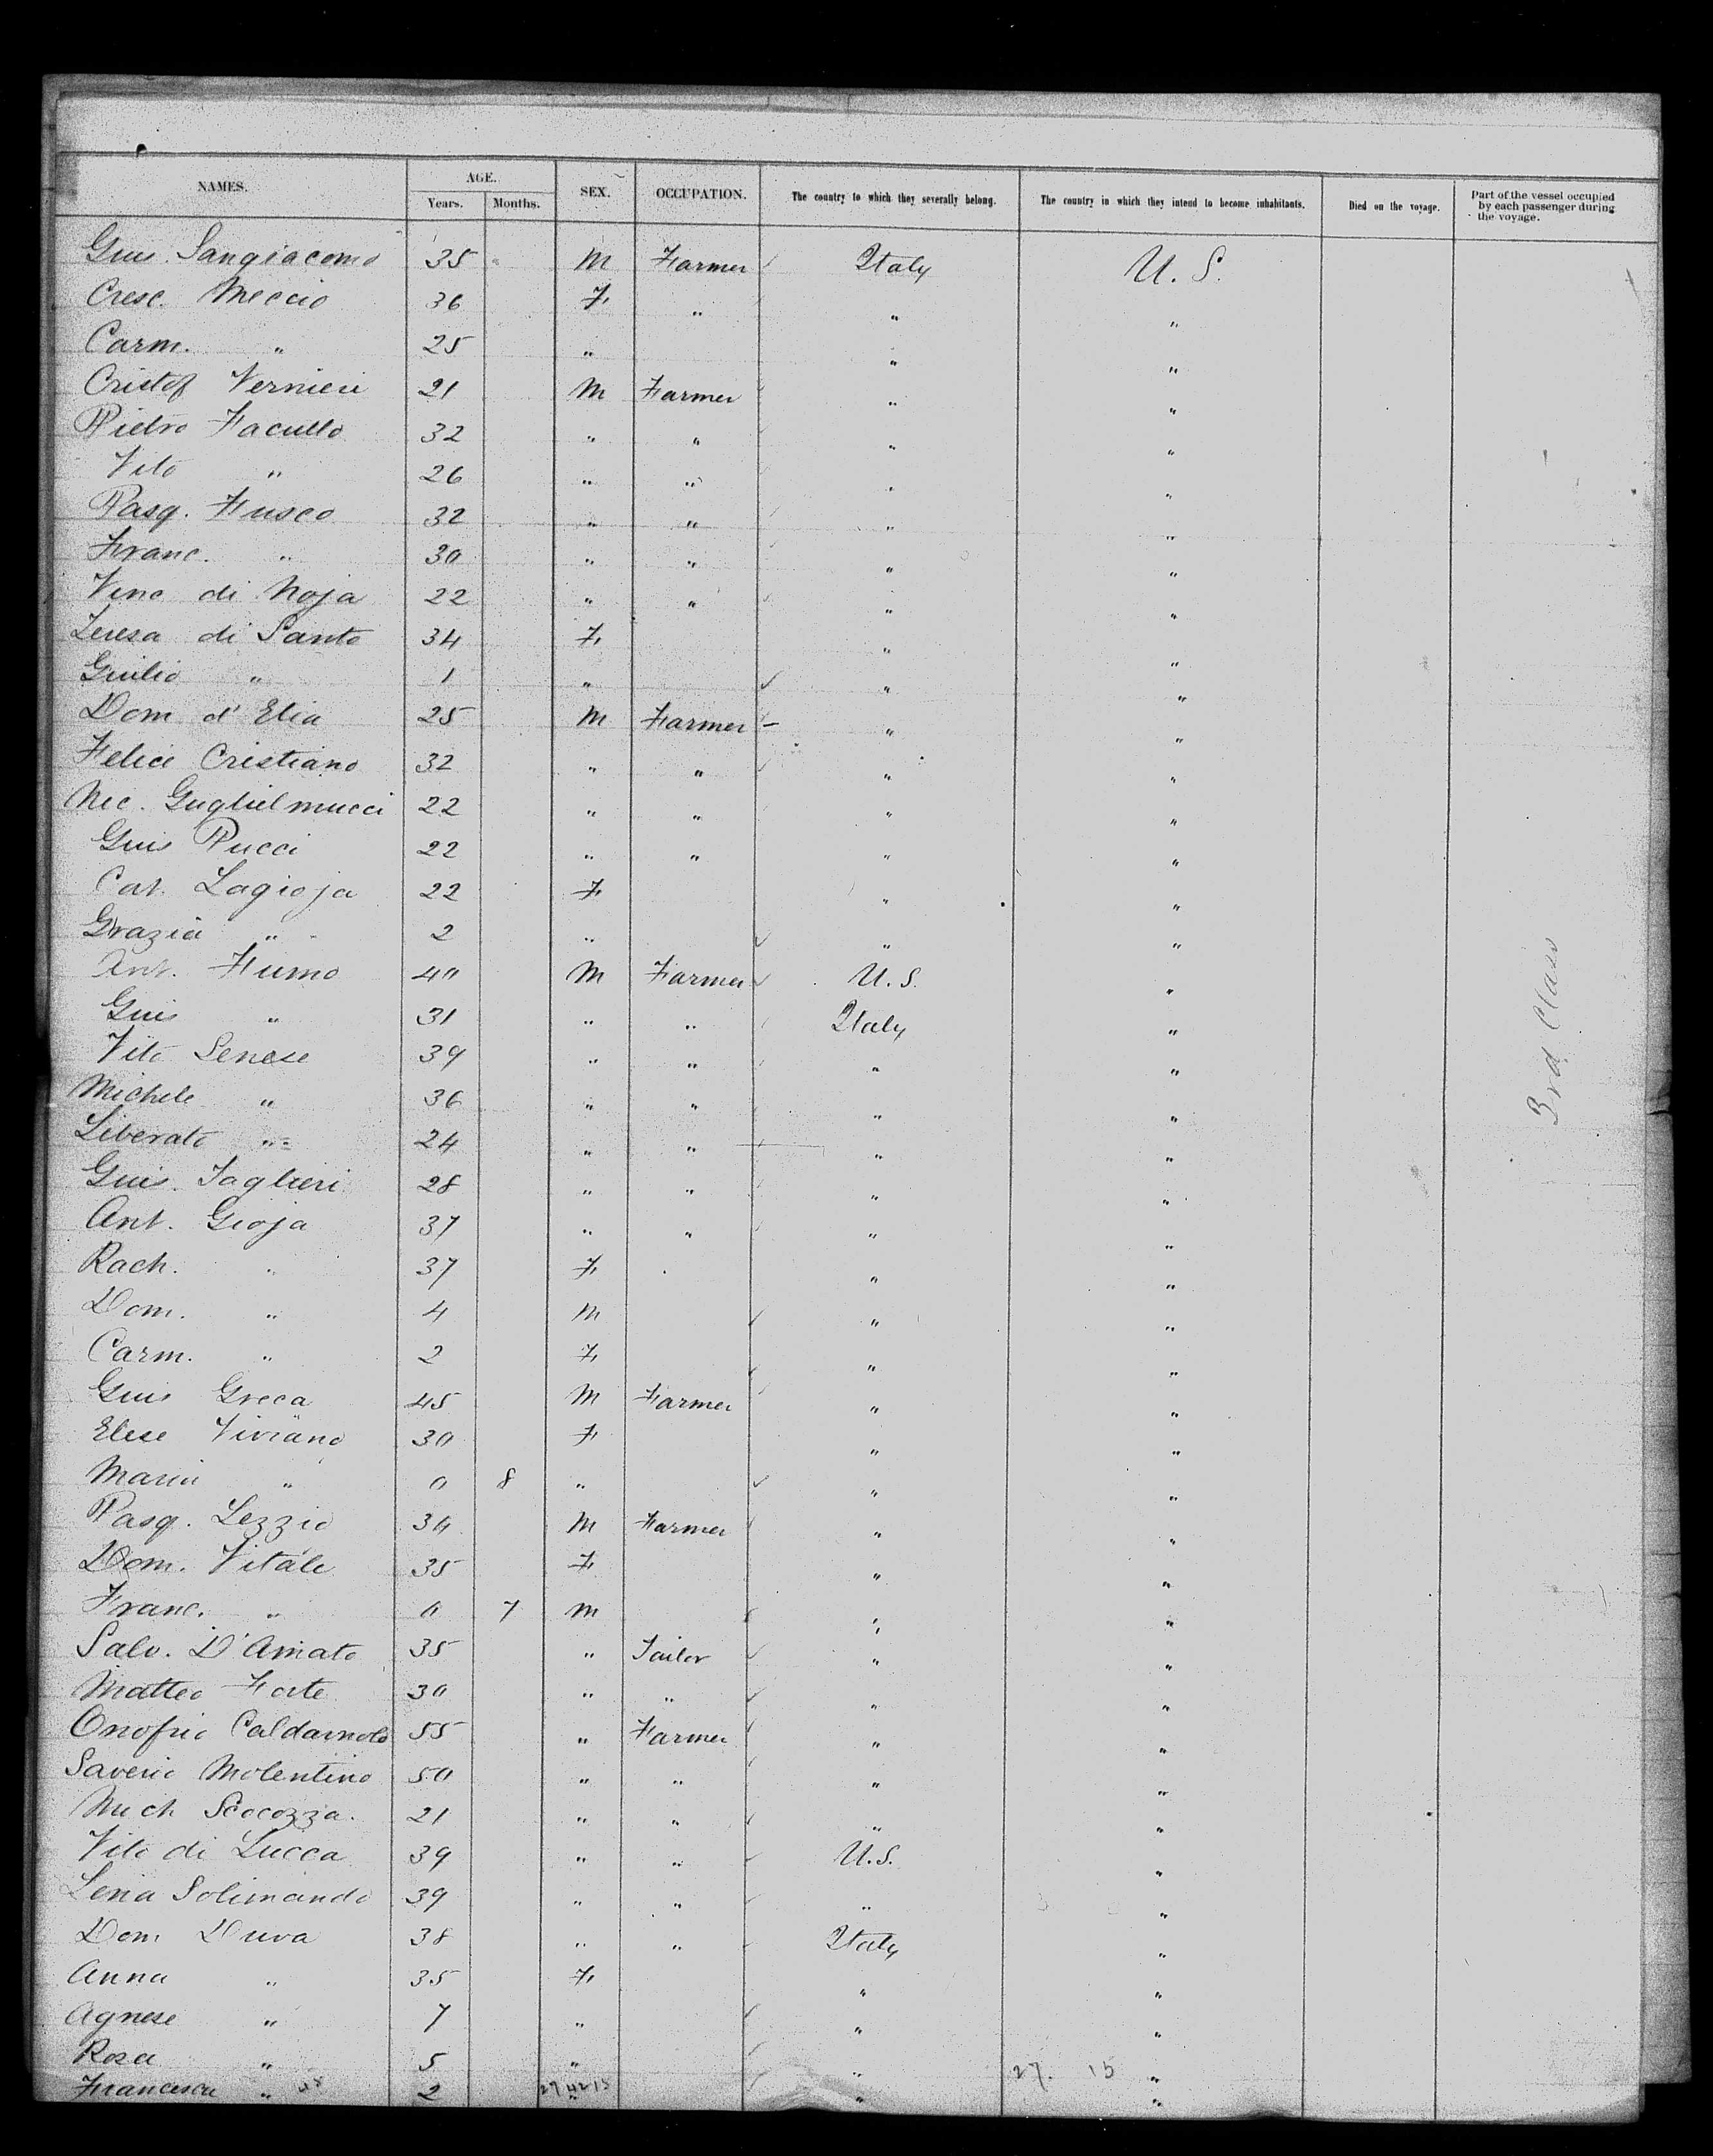 NAMES. AGE. Years. Months. SEX. OCCUPATION. The country to which they severally belong. The country in which they intend to become inhabitants. Died on the voyage. Part of the vessel occupied by each passenger during the voyage.
Guis. Sangiacomo 35 M Farmer Italy U. S.
Cresc. Meccio 36 F " " "
Carm. " 25 " " "
Cristof Vernieri 21 M Farmer " "
Pietro Facullo 32 " " " "
Vito " 26 " " " "
Pasq. Fusco 32 " " " "
Franc. " 30 " " " "
Vinc di Noja 22 " " " "
Teresa di Santo 34 F " "
Guilio " 1 " " "
Dom d'Elia 25 M Farmer " "
Felice Cristiano 32 " " " "
Nic. Guglielmucci 22 " " " "
Guis Pucci 22 " " " "
Cat. Lagioja 22 F " "
Grazia " 2 " " "
Ant. Fumo 40 M Farmer U.S. "
Guis " 31 " " Italy "
Vito Senese 39 " " " "
Michele " 36 " " " "
Liberato " 24 " " " "
Guis. Taglieri 28 " " " "
Ant. Gioja 37 " " " "
Rach. " 37 F " "
Dom. " 4 M " "
Carm. " 2 F " "
Guis Greca 45 M Farmer " "
Elise Viviano 30 F " "
Maria " 0 8 " " "
Pasq. Lezzio 34 M Farmer " "
Dom. Vitale 35 F " "
Franc. " 0 7 M " "
Salv. D'Amato 35 " Tailor " "
Matteo Forte 30 " " " "
Onofrio Caldarnolo 55 " Farmer " "
Saverio Molentino 50 " " " "
Mich Scocozza. 21 " " " "
Vito di Lucca 39 " " U.S. "
Lena Solimando 39 " " " "
Dom Duva 38 " " Italy "
Anna " 35 F " "
Agnese " 7 " " "
Rosa " 5 " " 27. 15 "
Francesca " 2 " " "
3rd Class